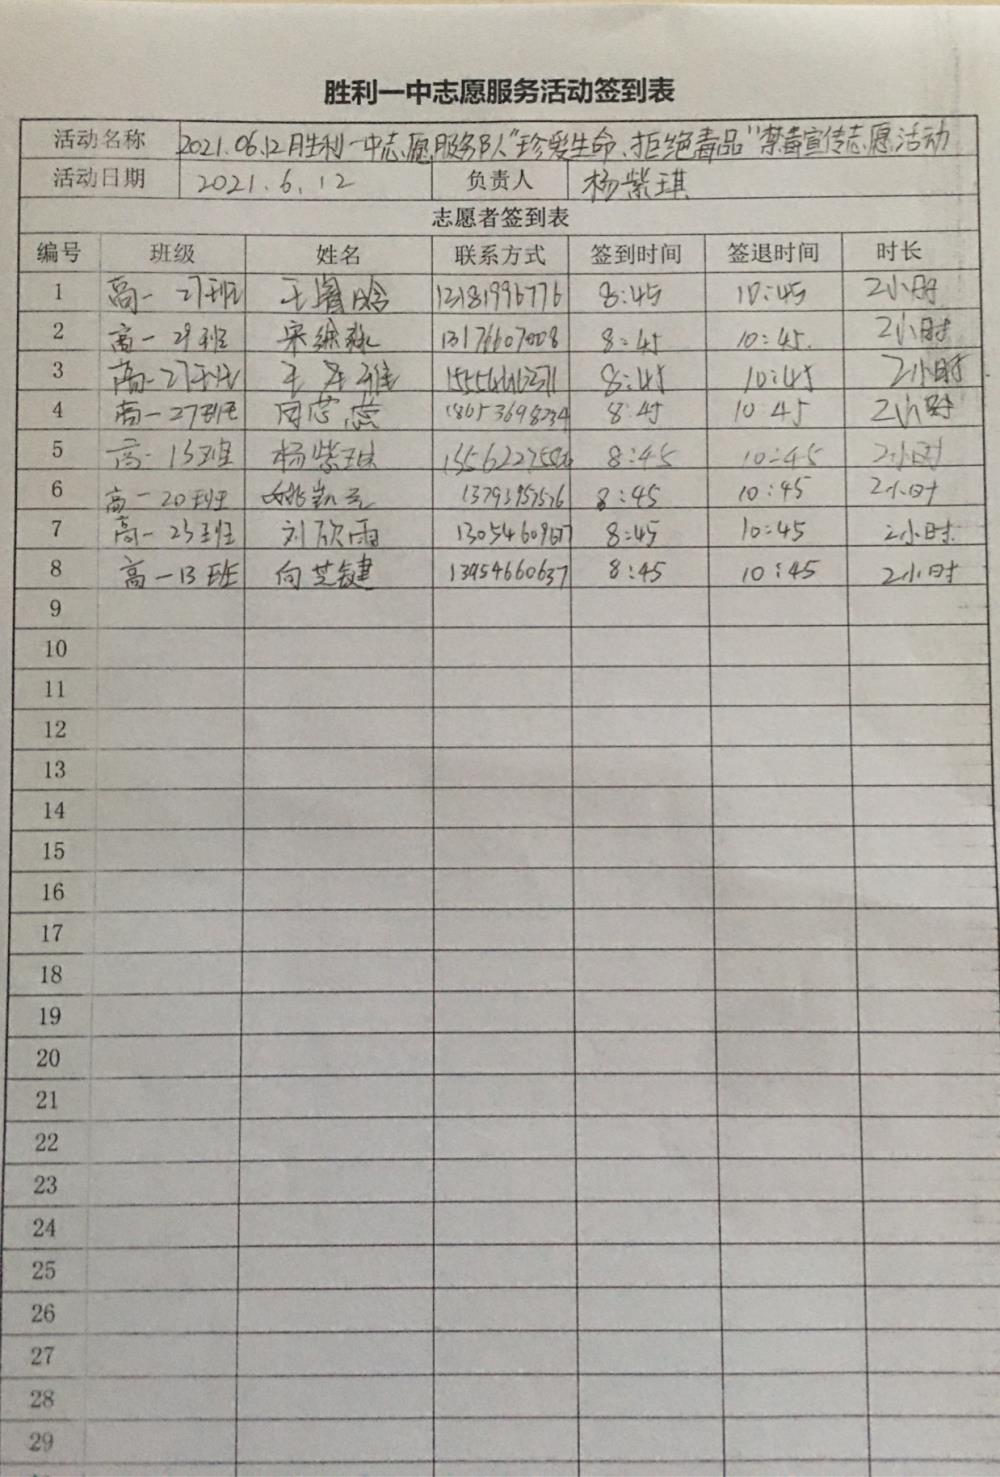 胜利一中志愿服务活动签到表
活动名称 2021.06.12月胜利一中志愿服务队“珍爱生命、拒绝毒品”禁毒宣传志愿活动
活动日期 2021.6.12 负责人 杨紫琪
志愿者签到表
编号 班级 姓名 联系方式 签到时间 签退时间 时长
1 高一27班 王睿晗 13181996776 8:45 10:45 2小时
2 高一29班 宋 13176607008 8:45 10:45. 2小时
3 高一27班 王 8:45 10:45 2小时
4 高一27班 周芯蕊 18653698234 8:45 10:45 2小时
5 高一13班 杨紫琪 8:45 10:45 2小时
6 高一20班 姚凯元 8:45 10:45 2小时
7 高一23班 刘欣雨 8:45 10:45 2小时.
8 高一13班 向芝键 13954660637 8:45 10:45 2小时
9
10
11
12
13
14
15
16
17
18
19
20
21
22
23
24
25
26
27
28
29